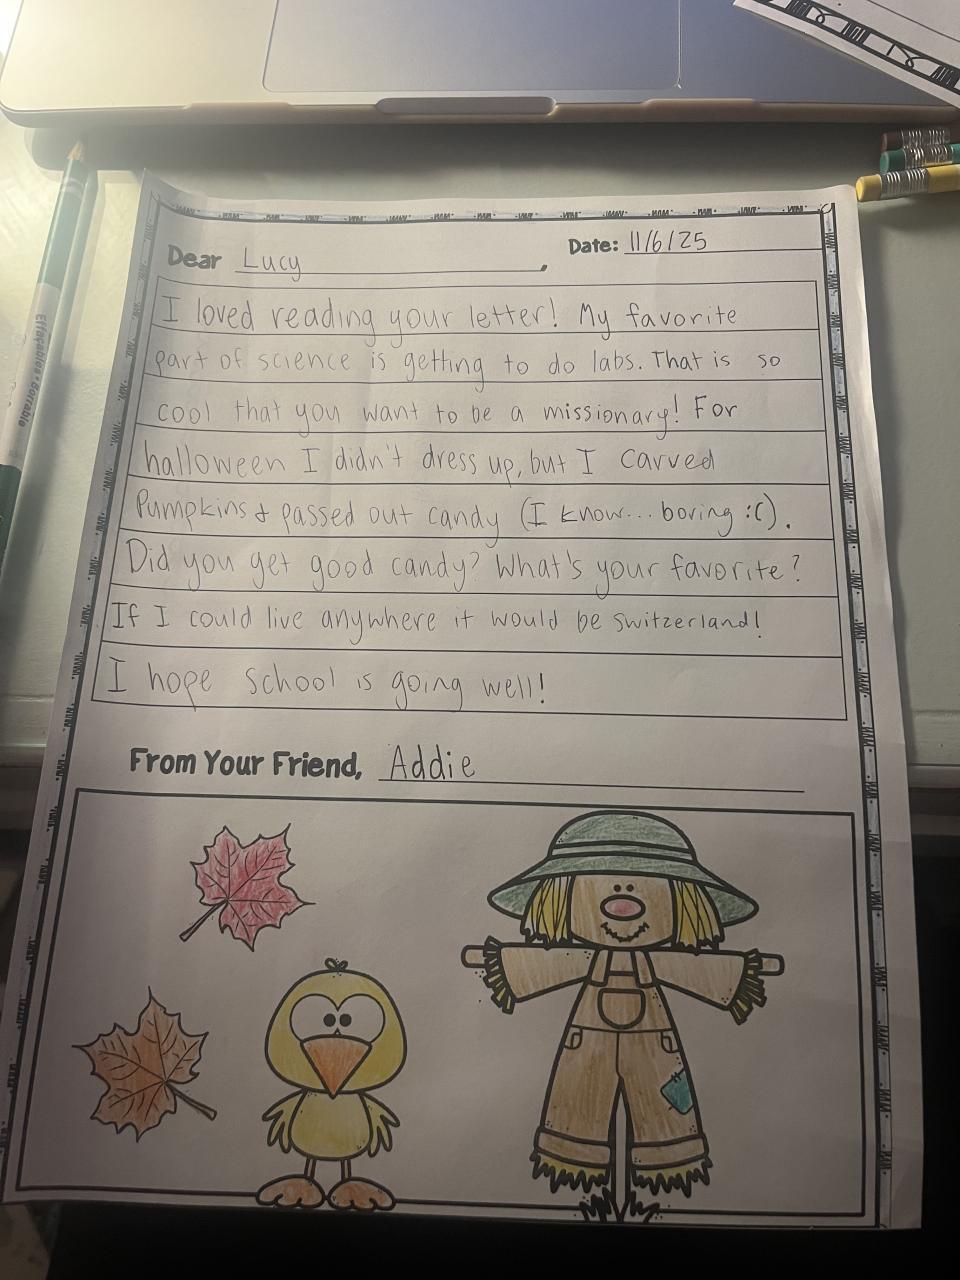 Dear Lucy,
Date: 11/6/25
I loved reading your letter! My favorite
part of science is getting to do labs. That is so
cool that you want to be a missionary! For
halloween I didn't dress up, but I carved
Pumpkins & passed out candy (I know... boring :( ).
Did you get good candy? What's your favorite?
If I could live anywhere it would be Switzerland!
I hope school is going well!
From Your Friend, Addie
Effaçables • Borrable